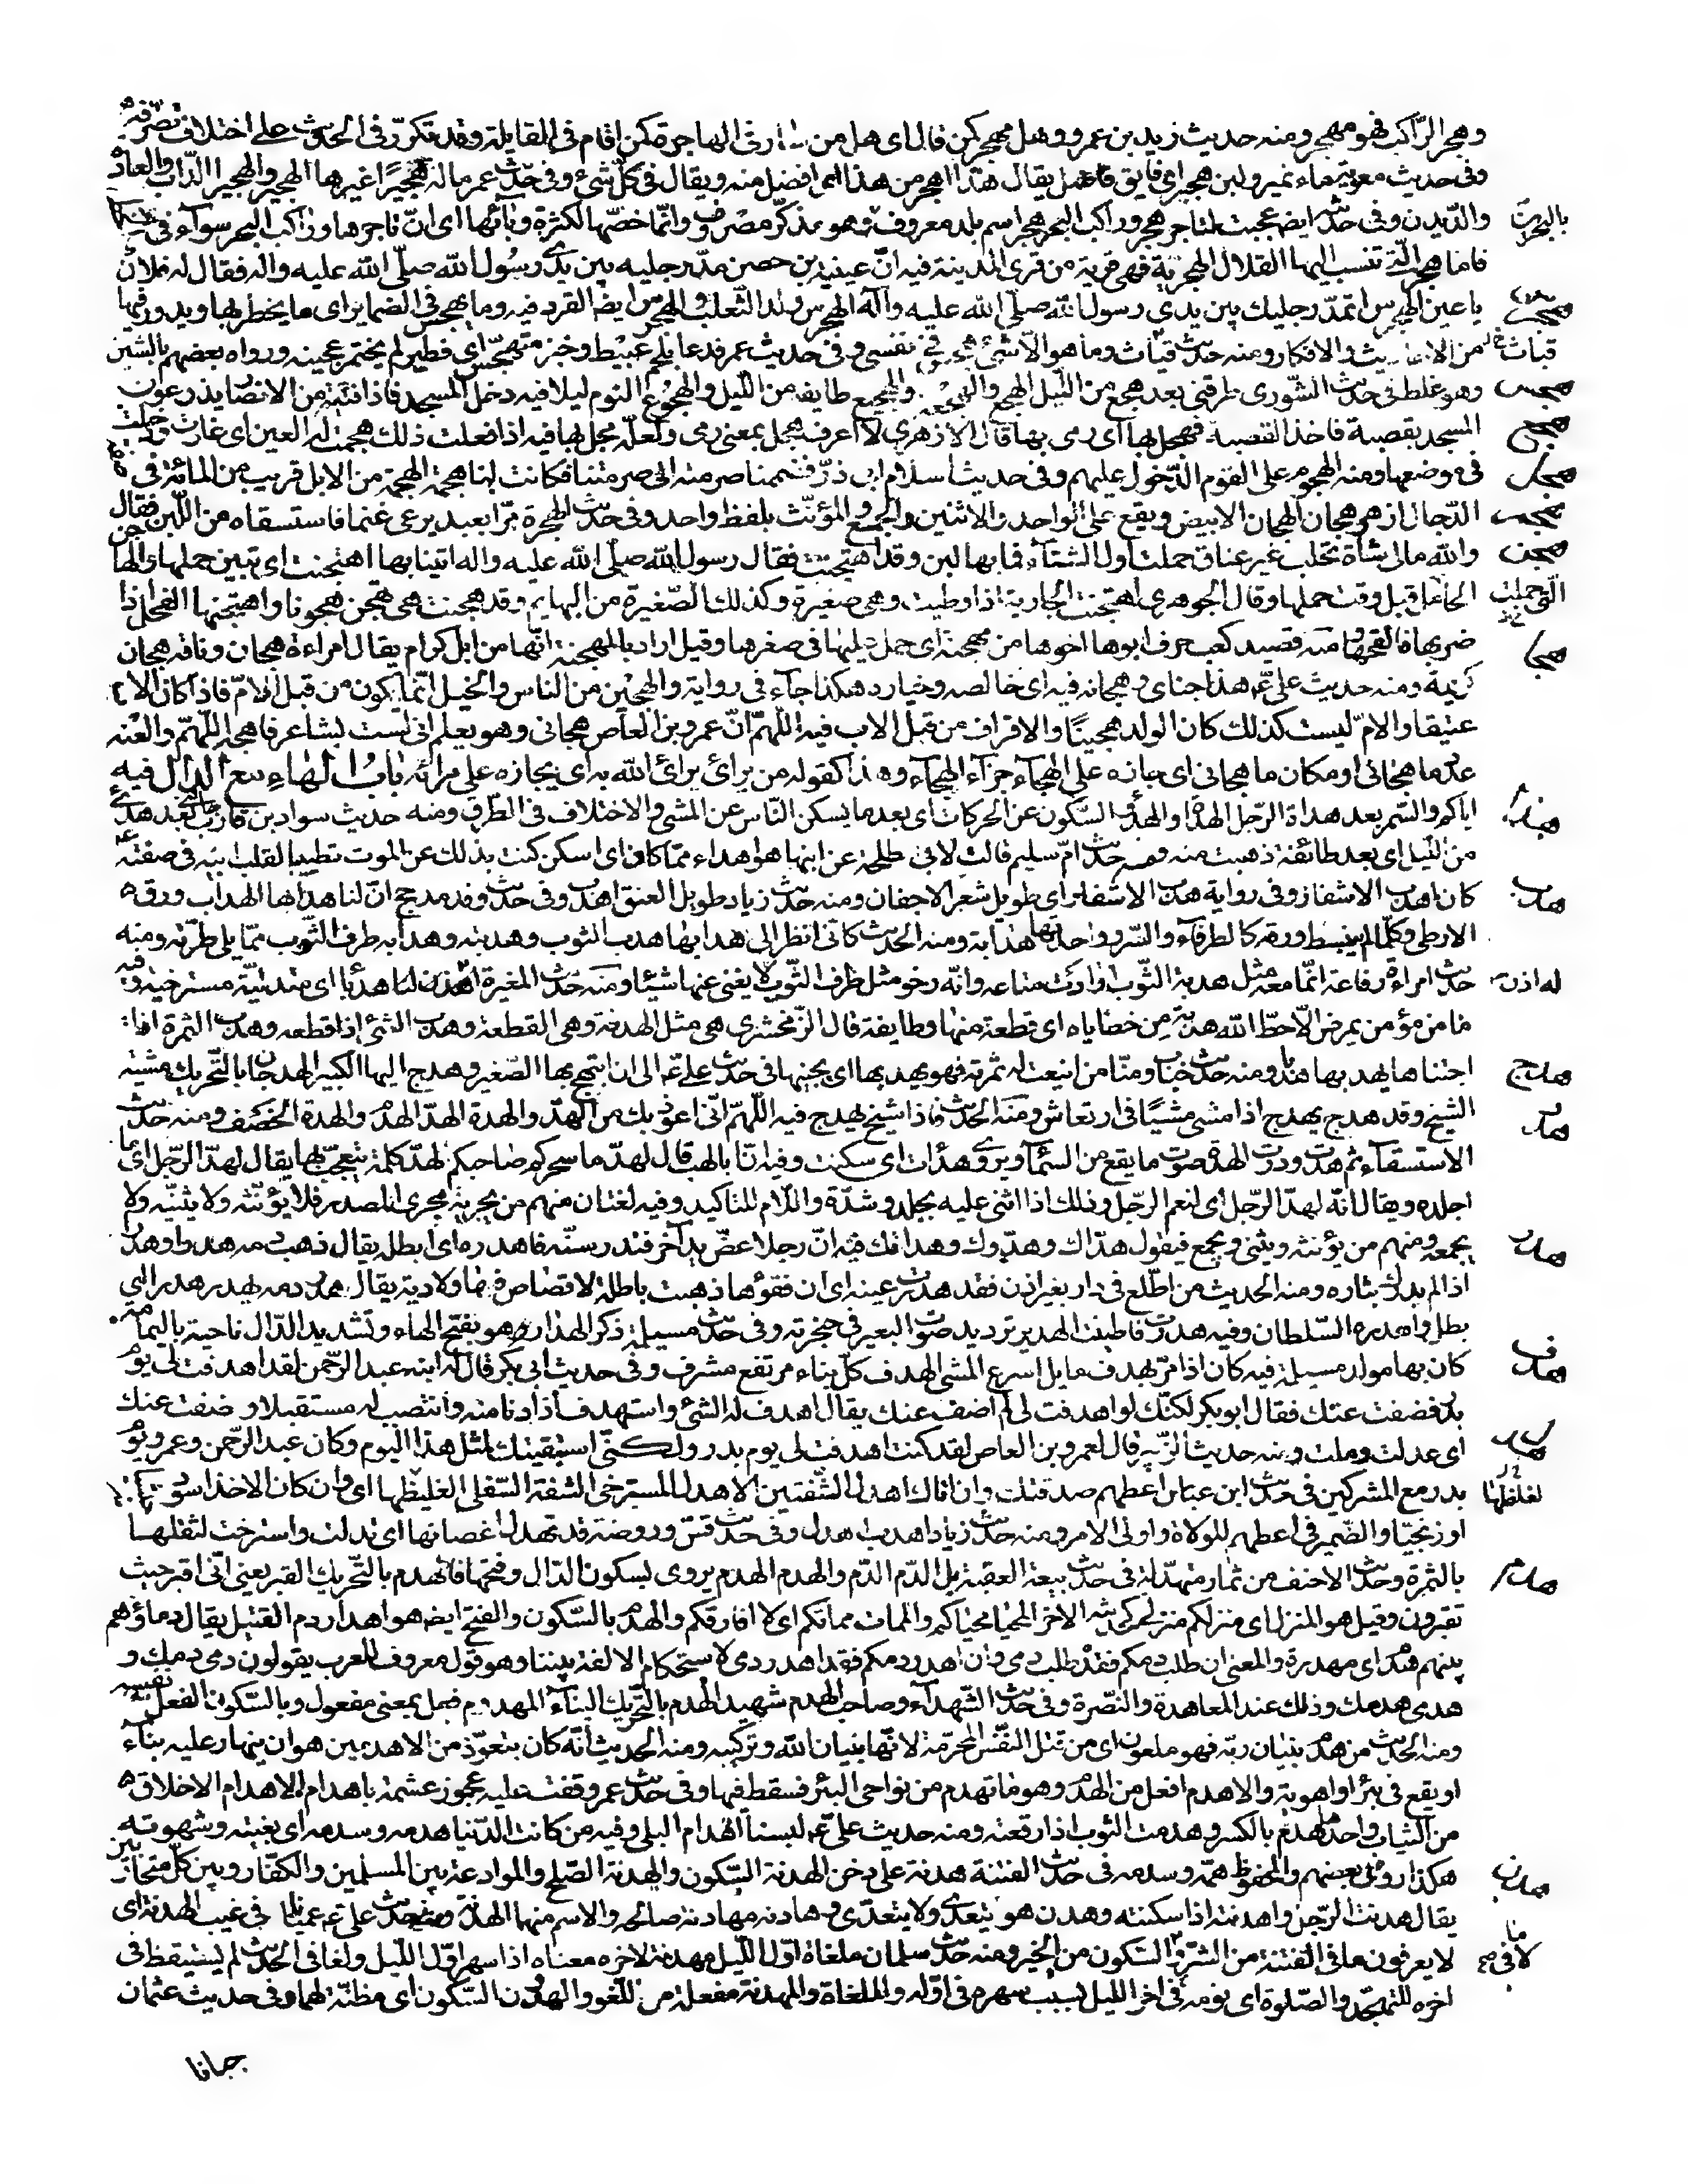 وهجر الراكب فهو مهجر ومنه حديث زيد بن عمرو وهل مهجر كمن قال اى هل من سار فى الهاجرة كمن اقام فى القايلة وقد تكرّر فى الحديث على اختلاف تصرّفه
وفى حديث معوية ماء نمير ولبن هجير اى فايق فاضل يقال هذا اهجر من هذا اى افضل منه ويقال فى كلّ شئ وفى حديث عمر ماله هجيرًا غيرها الهجير والهجيرا الدّاب والعادة
بالبحرين
والدّيدن وفى حديثه ايض عجبت لتاجر هجر وراكب البحر هجر اسم بلد معروف وهو مذكّر مصروف وانّما خصّها لكثرة وبائها اى انّ تاجرها وراكب البحر سوآء فى
فاما هجر الّتى تنسب اليها القلال الهجريّة فهى قرية من قرى المدينة فيه انّ عيينة بن حصن مدّ رجليه بين يدى رسول الله صلّى الله عليه واله فقال له فلان
هجرس
يا عين الهجرس اتمدّ رجليك بين يدى رسول الله صلّى الله عليه وآله الهجرس ولد الثّعلب والهجرس ايضا القرد فيه وما يهجس فى الضماير اى ما يخطر بها ويدور فيها
من الاحاديث والافكار ومنه حديث قباث وما هو الّا شئ هجس فى نفسى وفى حديث عمر فدعا بلحم عبيط وخبز متهجّس اى فطير لم يختمر عجينه ورواه بعضهم بالشين
هجس
وهو غلط فى حديث الشّورى طرقنى بعد هجع من اللّيل الهجع والهجعة والهجيع طايفة من اللّيل والهجوع النوم ليلا فيه دخل المسجد فاذا فتية من الانصار يذرعون
هجع
المسجد بقصبة فاخذ القصبة فهجل بها اى رمى بها قال الازهرى لا اعرف هجل بمعنى رمى ولعلّه نجل بها فيه اذا فعلت ذلك هجمت له العين اى غارت ودخلت
هجل
فى موضعها ومنه الهجوم على القوم الدّخول عليهم وفى حديث اسلام ابى ذرّ فضممنا صرمته الى صرمتنا فكانت لنا هجمة الهجمة من الابل قريب من المائة فى
هجم
الدّجال ازهر هجان الهجان الابيض ويقع على الواحد والاثنين والجمع والمؤنّث بلفظ واحد وفى حديث الهجرة مرّا بعبد يرعى غنما فاستسقاه من اللّبن فقال
هجن
والله مالى شاة تحلب غير عناق حملت اول الشتآء فما بها لبن وقد اهتجنت فقال رسول الله صلّى الله عليه واله ائتنا بها اهتجنت اى تبيّن حملها والهاجن
التى حملت
قبل وقت حملها وقال الجوهرى اهتجنت الجارية اذا وطيت وهى صغيرة وكذلك الصّغيرة من البهايم وقد هجنت هى تهجن هجونا واهتجنها الفحل اذا
هجا
ضربها فالقحها ومنه قصيد كعب حرف ابوها اخوها من مهجنة اى حمل عليها فى صغرها وقيل اراد بالمهجنة انّها من ابل كرام يقال امراءة هجان وناقة هجان
كريمة ومنه حديث علىّ ع هذا جناى وهجانه فيه اى خالصه وخياره هكذا جآء فى رواية والهجين من الناس والخيل انّما يكون من قبل الامّ فاذا كان الاب
عتيقا والامّ ليست كذلك كان الولد هجينًا والاقراف من قبل الاب فيه اللّهمّ انّ عمرو بن العاص هجانى وهو يعلم انى لست بشاعر فاهجه اللّهمّ والعنه
عدد ما هجانى او مكان ما هجانى اى جازه على الهجآء جزآء الهجآء وهذا كقوله من يرائ يرائ الله به اى يجازه على مرائه باب الهاء مع الدال فيه
هدأ
اياكم والسّمر بعد هداة الرّجل الهداة والهدو السّكون عن الحركات اى بعد ما يسكن النّاس عن المشى والاختلاف فى الطّرق ومنه حديث سواد بن قارب بعد هدئ
من اللّيل اى بعد طائفة ذهبت منه ومنه حديث امّ سليم قالت لابى طلحة عن ابنها هو اهداء ممّا كان اى اسكن كنت بذلك عن الموت تطييبا لقلب ابيه فى صفته
هدب
كان اهدب الاشفار وفى رواية هدب الاشفار اى طويل شعر الاجفان ومنه حديث زياد طويل العنق اهدب وفى حديث وفد مذحج انّ لنا هدابها الهداب ورق
الارطى وكلّما لم ينبسط ورقه كالطرفآء والسّرو واحدتها هدابة ومنه الحديث كانّى انظر الى هدابها هدب الثوب وهدبته وهدابه طرف الثّوب ممّا يلى طرّته ومنه
حديث امراءة رفاعة انّما معه مثل هدبة الثّوب ارادت متاعه وانّه رخو مثل طرف الثّوب لا يغنى عنها شيئا ومنه حديث المغيرة له اذن هدباء اى متدليّة مسترخية وفيه
ما من مؤمن يمرض الّا حطّ الله هدبة من خطاياه اى قطعة منها وطايفة قال الزّمخشرى هى مثل الهدفة وهى القطعة وهدب الشئ اذا قطعه وهدب الثمرة اذا
هدج
اجتناها يهدبها هدبا ومنه حديث خبّاب ومنّا من اينعت له ثمرته فهو يهدبها اى يجنيها فى حديث علىّ ع الى ان ابتهج بها الصّغير وهدج اليها الكبير الهدجان بالتّحريك مشية
هدد
الشيخ وقد هدج يهدج اذا مشى مشيًا فى ارتعاش ومنه الحديث فاذا شيخ يهدج فيه اللّهمّ انّى اعوذ بك من الهدّ والهدة الهدّ الهدم والهدة الخسف ومنه حديث
الاستسقآء ثم هدت ودرّت الهدة صوت ما يقع من السّمآء ويروى وهدأت اى سكنت وفيه انّ ابا لهب قال لهدّ ما سحركم صاحبكم لهدّ كلمة يتعجّب بها يقال لهدّ الرّجل اى ما
اجلده ويقال انّه لهدّ الرّجل اى لنعم الرّجل وذلك اذا اثنى عليه بجلد وشدّة واللّام للتاكيد وفيه لغتان منهم من يجريه مجرى المصدر فلا يؤنّثه ولا يثنّيه ولا
هدر
يجمعه ومنهم من يؤنثه ويثنى ويجمع فيقول هدّاك وهدّوك وهدّاتك فيه انّ رجلا عضّ يد آخر فندر سنّه فاهدره اى ابطله يقال ذهب دمه هدرا وهدرا
اذا لم يدرك بثاره ومنه الحديث من اطّلع فى دار بغير اذن فقد هدرت عينه اى ان فقؤها ذهبت باطلة لا قصاص فيها ولا دية يقال هدر دمه يهدر هدرا اى
بطل واهدره السّلطان وفيه هدرت فاطنبت الهدير ترديد صوت البعير فى حنجرته وفى حديث مسيلمة ذكر الهدار وهو بفتح الهاء وتشديد الدّال ناحية باليمامة
هدف
كان بها مولد مسيلمة فيه كان اذا مرّ بهدف مايل اسرع المشى الهدف كلّ بناء مرتفع مشرف وفى حديث ابى بكر قال له ابنه عبد الرّحمن لقد اهدفت لى يوم
بدر فضفت عنك فقال ابو بكر لكنّك لو اهدفت لى لم اضف عنك يقال اهدف له الشئ واستهدف اذا دنا منه وانتصب له مستقبلا وضفت عنك
هدل
اى عدلت وملت ومنه حديث الزّبير قال لعمرو بن العاص لقد كنت اهدفت لى يوم بدر ولكنّى استبقيتك لمثل هذا اليوم وكان عبد الرّحمن وعمرو يوم
بدر مع المشركين فى حديث ابن عباس اعطهم صدقتك وان اتاك اهدل الشّفتين الاهدل المسترخى الشفة السّفلى الغليظها اى وان كان الاخذ اسود
او زنجيّا والضّمير فى اعطهم للولاة واولى الامر ومنه حديث زياد اهدب اهدل وفى حديث قسّ وروضة قد تهدّل اغصانها اى تدلت واسترخت لثقلها
هدم
بالثمرة وحديث الاحنف من ثمار متهدّلة فى حديث بيعة العقبة بل الدّم الدّم والهدم الهدم يروى بسكون الدّال وفتحها فالهدم بالتّحريك القبر يعنى انّى اقبر حيث
تقبرون وقيل هو المنزل اى منزلكم منزلى كحديثه الاخر المحيا محياكم والممات مماتكم اى لا افارقكم والهدم بالسّكون والفتح ايض هو اهدار دم القتيل يقال دماؤهم
بينهم هدر اى مهدرة والمعنى ان طلب دمكم فقد طلب دمى وان اهدر دمكم فقد اهدر دمى لاستحكام الالفة بيننا وهو قول معروف للعرب يقولون دمى دمك و
هدمى هدمك وذلك عند المعاهدة والنصّرة وفى حديث الشّهدآء وصاحب الهدم شهيد الهدم بالتّحريك البنآء المهدوم فعل بمعنى مفعول وبالسّكون الفعل نفسه
ومنه الحديث من هدم بنيان ربّه فهو ملعون اى من قتل النّفس المحرّمة لانّها بنيان الله وتركيبه ومنه الحديث انّه كان يتعوّذ من الاهدمين هو ان ينهار عليه بنآء
او يقع فى بئر او اهوية والاهدم افعل من الهدم وهو ما تهدم من نواحى البئر فسقط فيها وفى حديث عمر وقفت عليه عجوز عشمة باهدام الاهدام الاخلاق
من الثياب واحدها هدم بالكسر وهدمت الثوب اذا رقعته ومنه حديث علىّ ع لبسنا اهدام البلى وفيه من كانت الدّنيا هدمه وسدمه اى بغيته وشهوته
هدن
هكذا رواه بعضهم والمحفوظ همّه وسدمه فى حديث الفتنة هدنة على دخن الهدنة السّكون والهدنة الصّلح والموادعة بين المسلمين والكفّار وبين كلّ متحاربين
يقال هدنت الرّجل واهدنته اذا سكنته وهدن هو يتعدّى ولا يتعدّى وهادنه مهادنة صالحه والاسم منها الهدنة ومنه حديث علىّ ع عميانا فى غيب الهدنة اى
لا يعرفون ما فى الفتنة من الشرّ ولا ما فى السّكون من الخير ومنه حديث سلمان ملغاة اوّل اللّيل مهدنة لاخره معناه اذا سهر اوّل اللّيل ولغا فى الحديث لم يستيقظ فى
اخره للتهجّد والصّلوة اى نومه فى اخر الليل بسبب سهره فى اوّله والملغاة والمهدنة مفعلة من اللّغو والهدون السّكون اى مظنّة لهما وفى حديث عثمان
جبانا